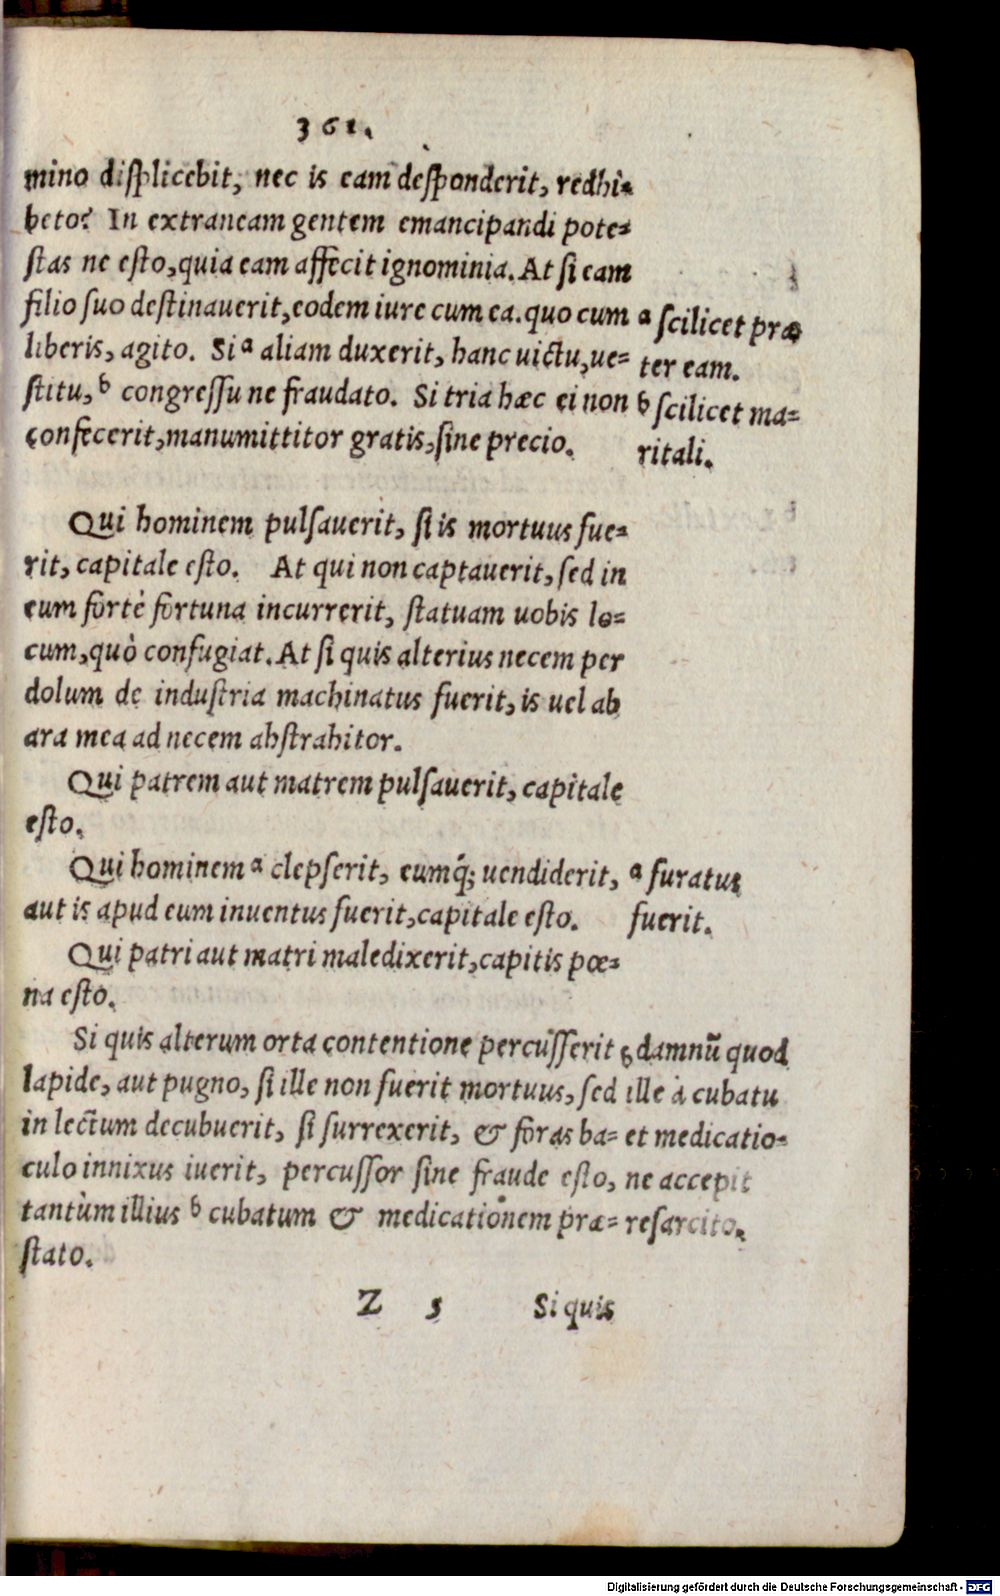 361.
mino displicebit, nec is eam desponderit, redhi-
beto? In extraneam gentem emancipandi pote-
stas ne esto, quia eam affecit ignominia. At si eam
filio suo destinauerit, eodem iure cum ea. quo cum
liberis, agito. Si a aliam duxerit, hanc uictu, ue-
stitu, b congressu ne fraudato. Si tria hæc ei non
confecerit, manumittitor gratis, sine precio.
a scilicet præ
ter eam.
b scilicet ma-
ritali.
Qui hominem pulsauerit, si is mortuus fue-
rit, capitale esto. At qui non captauerit, sed in
eum fortè fortuna incurrerit, statuam uobis lo-
cum, quò confugiat. At si quis alterius necem per
dolum de industria machinatus fuerit, is uel ab
ara mea ad necem abstrahitor.
Qui patrem aut matrem pulsauerit, capitale
esto.
Qui hominem a clepserit, eumq́; uendiderit,
aut is apud eum inuentus fuerit, capitale esto.
a furatus
fuerit.
Qui patri aut matri maledixerit, capitis pœ-
na esto.
Si quis alterum orta contentione percusserit
lapide, aut pugno, si ille non fuerit mortuus, sed
in lectum decubuerit, si surrexerit, & foras ba-
culo innixus iuerit, percussor sine fraude esto,
tantùm illius b cubatum & medicationem præ-
stato.
b damnū quod
ille à cubatu
et medicatio-
ne accepit
resarcito.
Z 5 Si quis
Digitalisierung gefördert durch die Deutsche Forschungsgemeinschaft - DFG